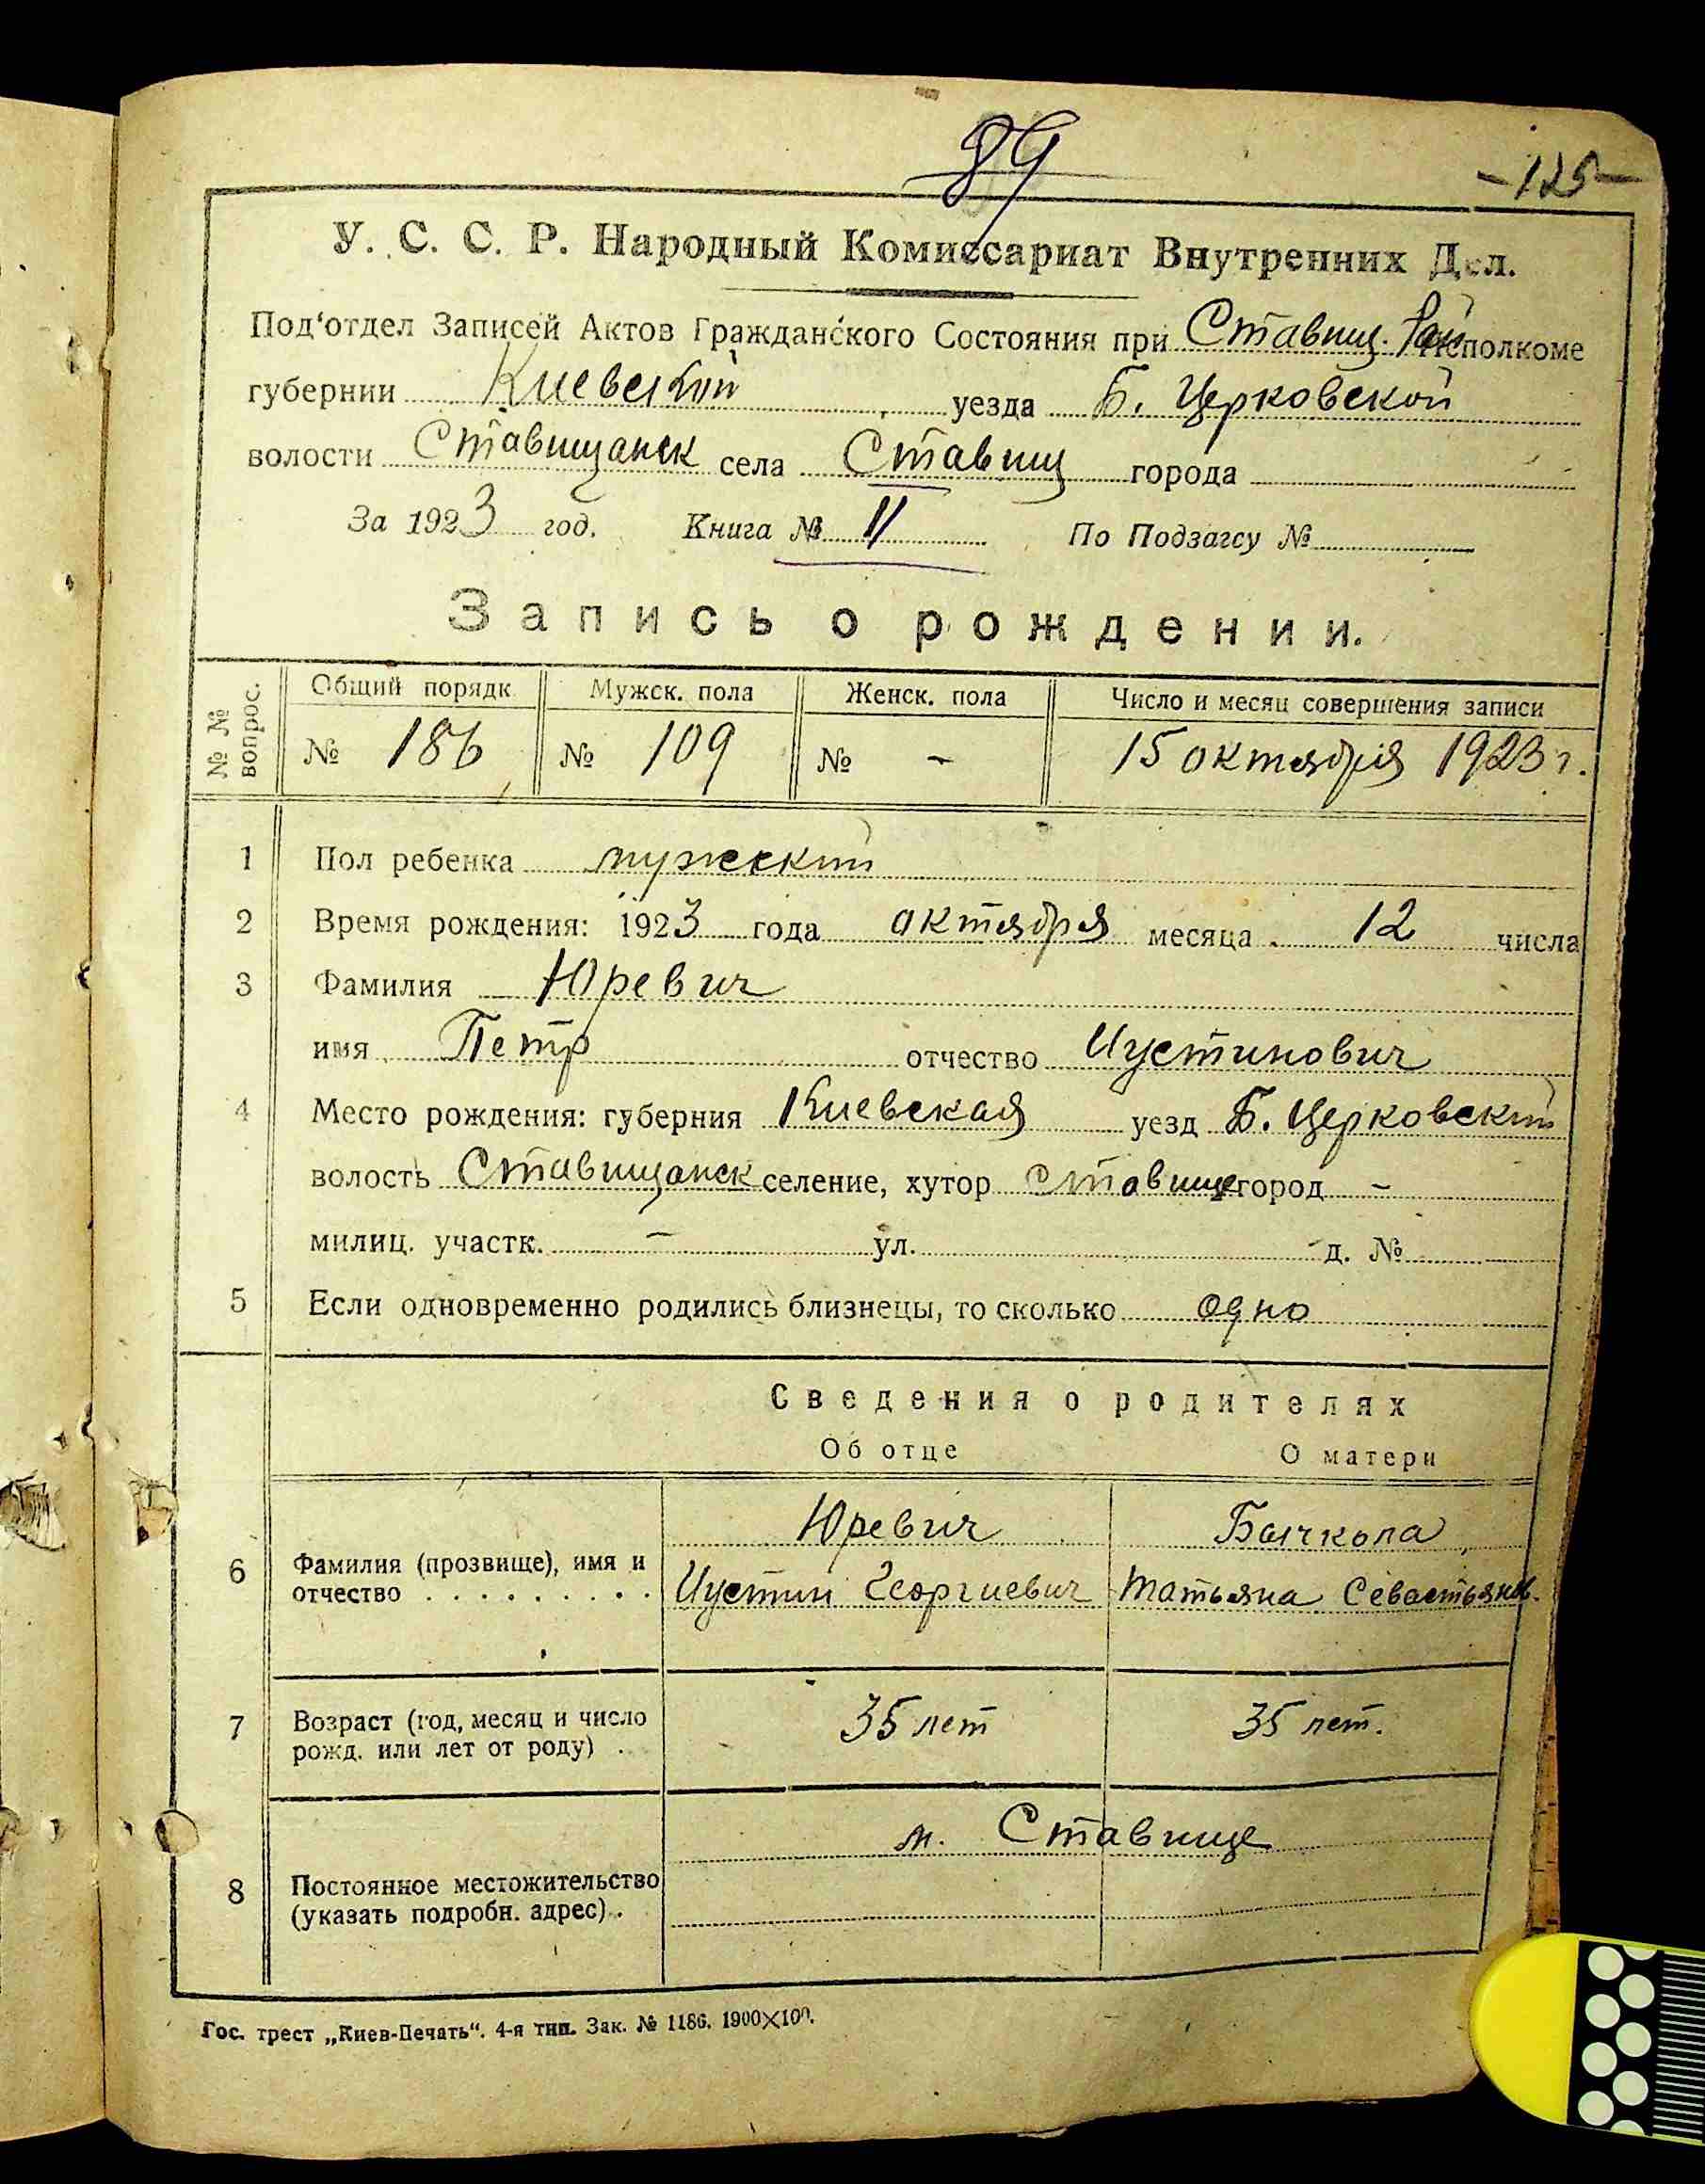 89
-125-
У. С. С. Р. Народный Комиссариат Внутренних Дел.
Под'отдел Записей Актов Гражданского Состояния при Ставищ. Рай Исполкоме
губернии Киевской уезда Б. Церковской
волости Ставищанск села Ставищ города
За 1923 год. Книга № II По Подзагсу №
Запись о рождении.
№ № вопрос. Общий порядк Мужск. пола Женск. пола Число и месяц совершения записи
№ 186 № 109 № - 15 октября 1923 г.
1 Пол ребенка мужеский
2 Время рождения: 1923 года октября месяца 12 числа
3 Фамилия Юревич
имя Петр отчество Иустинович
4 Место рождения: губерния Киевская уезд Б. Церковский
волость Ставищанск селение, хутор Ставище город -
милиц. участк. - ул. - д. №
5 Если одновременно родились близнецы, то сколько одно
Сведения о родителях
Об отце О матери
Юревич Бычкола
6 Фамилия (прозвище), имя и
отчество . . . . . . . . . Иустин Георгиевич Татьяна Севастьянов.
7 Возраст (год, месяц и число
рожд. или лет от роду) . 35 лет 35 лет.
м. Ставище
8 Постоянное местожительство
(указать подробн. адрес) .
Гос. трест „Киев-Печать“. 4-я тип. Зак. № 1186. 1900×100.